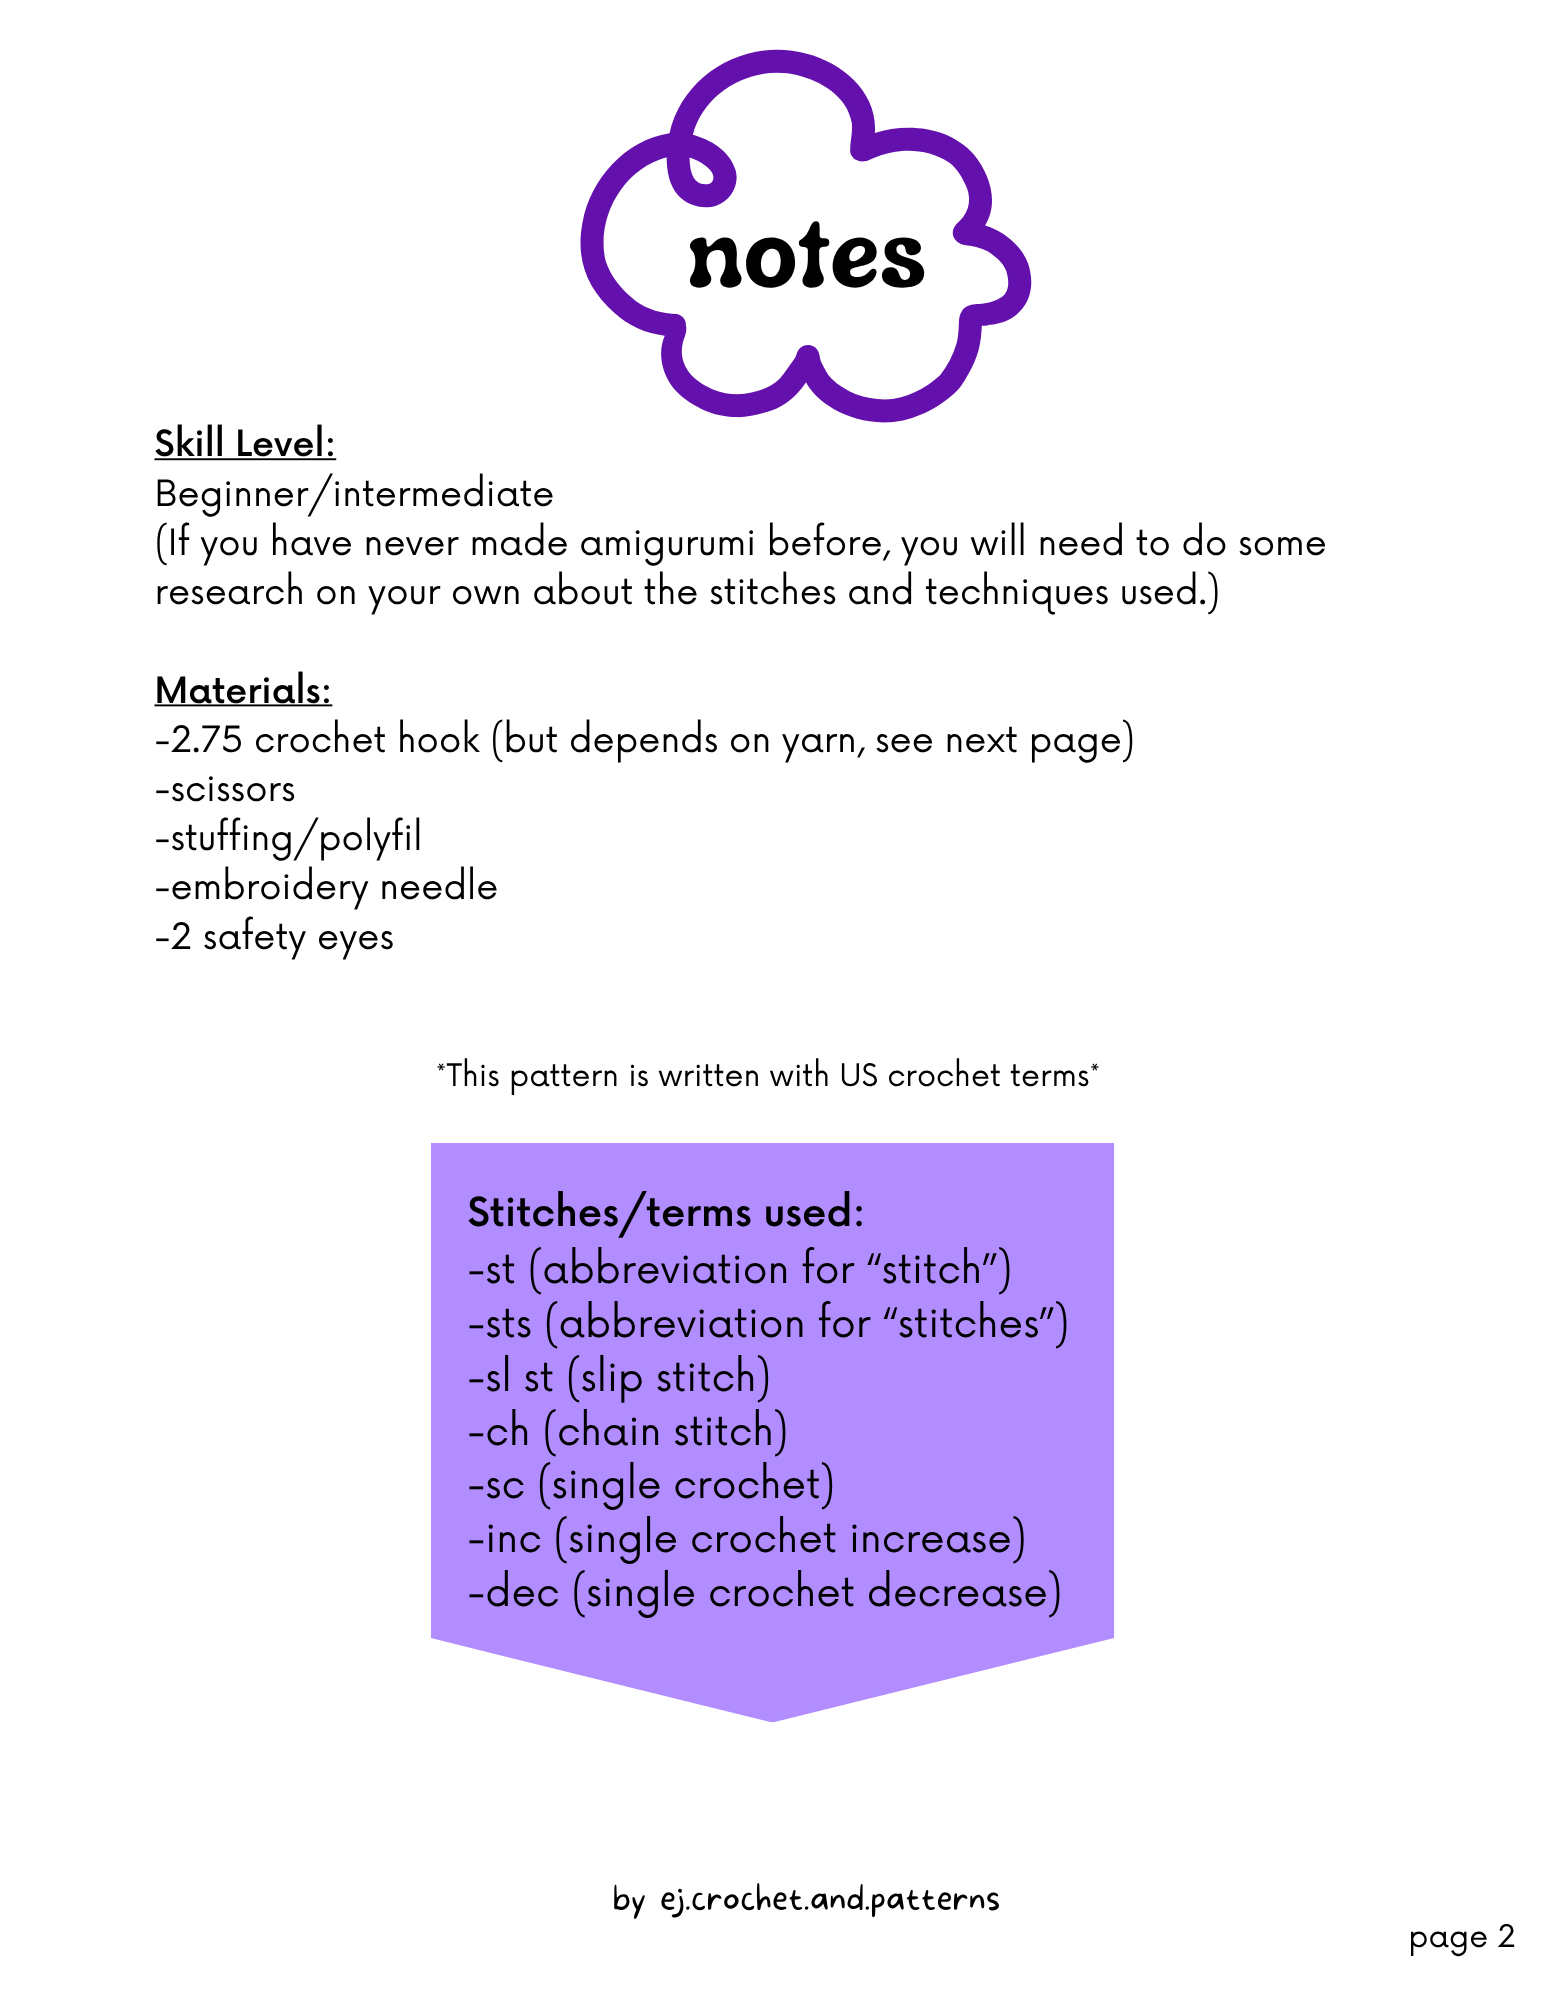 notes
Skill Level:
Beginner/intermediate
(If you have never made amigurumi before, you will need to do some
research on your own about the stitches and techniques used.)
Materials:
-2.75 crochet hook (but depends on yarn, see next page)
-scissors
-stuffing/polyfil
-embroidery needle
-2 safety eyes
*This pattern is written with US crochet terms*
Stitches/terms used:
-st (abbreviation for “stitch”)
-sts (abbreviation for “stitches”)
-sl st (slip stitch)
-ch (chain stitch)
-sc (single crochet)
-inc (single crochet increase)
-dec (single crochet decrease)
by ej.crochet.and.patterns
page 2